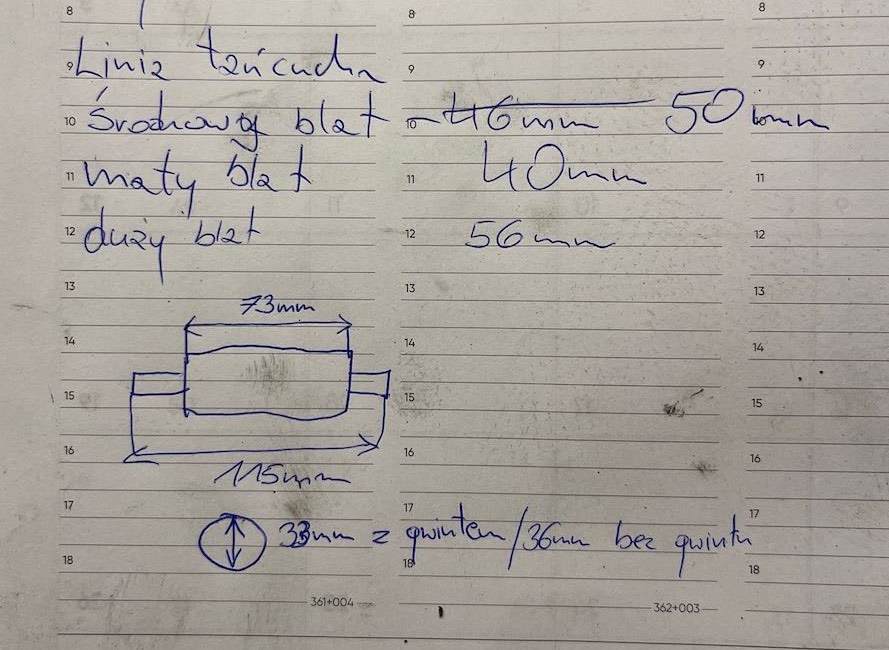 8 8 8
9 Linia łańcucha 9 9
10 Środkowy blat 10 - 46mm 50 mm
11 mały blat 11 40mm 11
12 duży blat 12 56mm 12
13 73mm 13 13
14 14 14
15 15 15
16 115mm 16 16
17 17 17
33mm z gwintem/36mm bez gwintu
18 18 18
361+004 362+003